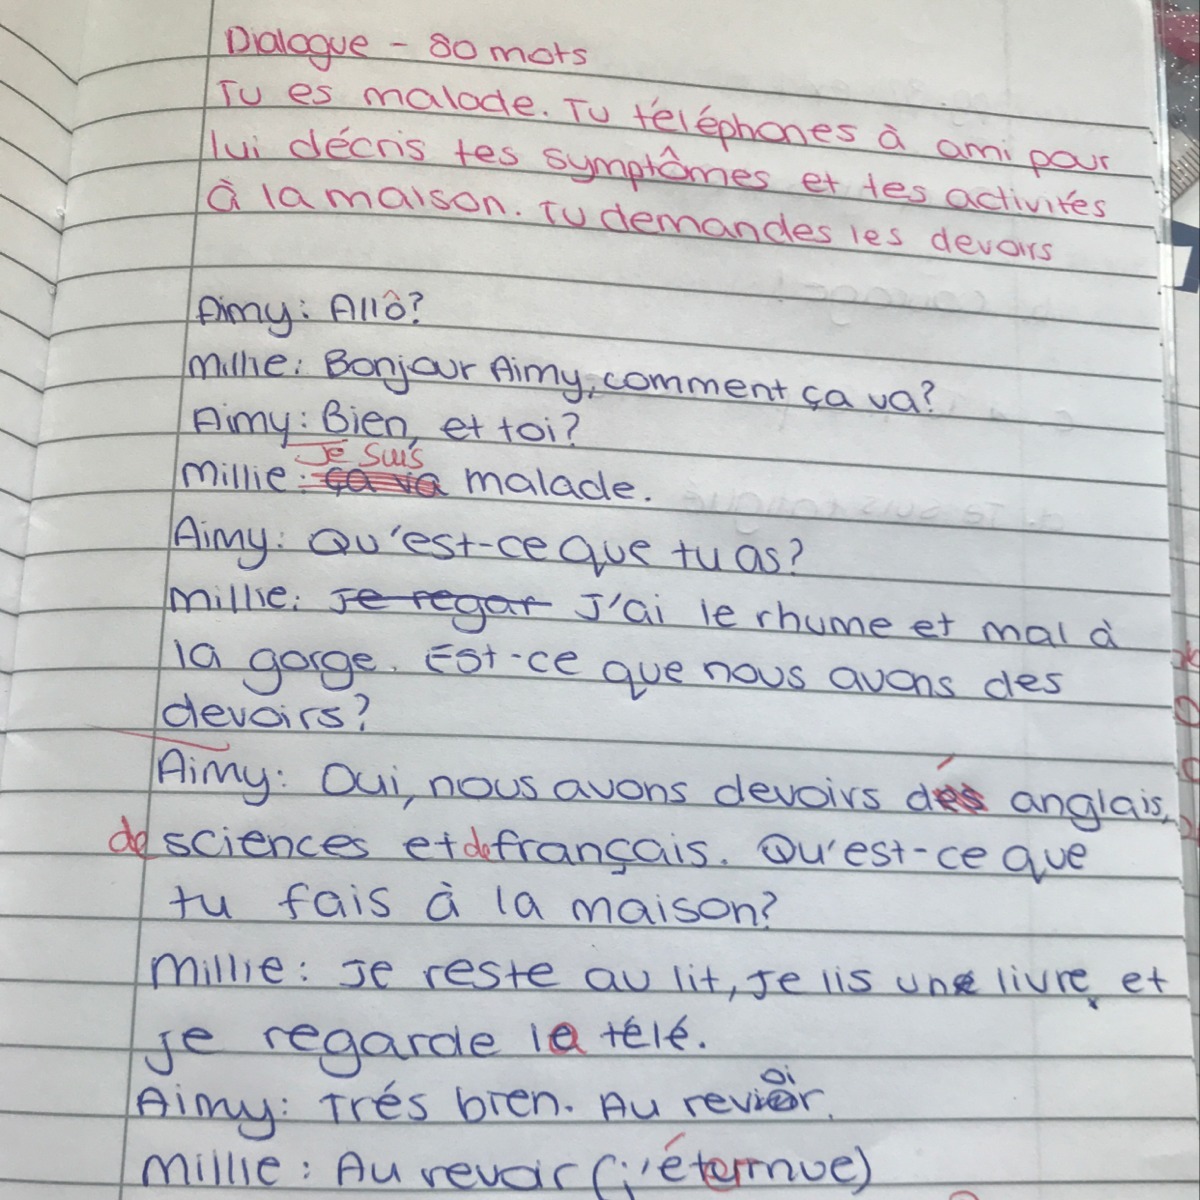 Dialogue - 80 mots
Tu es malade. Tu téléphones à ami pour
lui décris tes symptômes et tes activités
à la maison. Tu demandes les devoirs
Aimy: Allô?
Millie: Bonjour Aimy, comment ça va?
Aimy: Bien, et toi?
Je suis
Millie: ça va malade.
Aimy: Qu'est-ce que tu as?
Millie: Je regar J'ai le rhume et mal à
la gorge. Est-ce que nous avons des
devoirs?
Aimy: Oui, nous avons devoirs des anglais,
de sciences et de français. Qu'est-ce que
tu fais à la maison?
Millie: Je reste au lit, je lis une livre, et
je regarde la télé.
Aimy: Trés bien. Au revoir.
Millie: Au revoir (j'éternue)